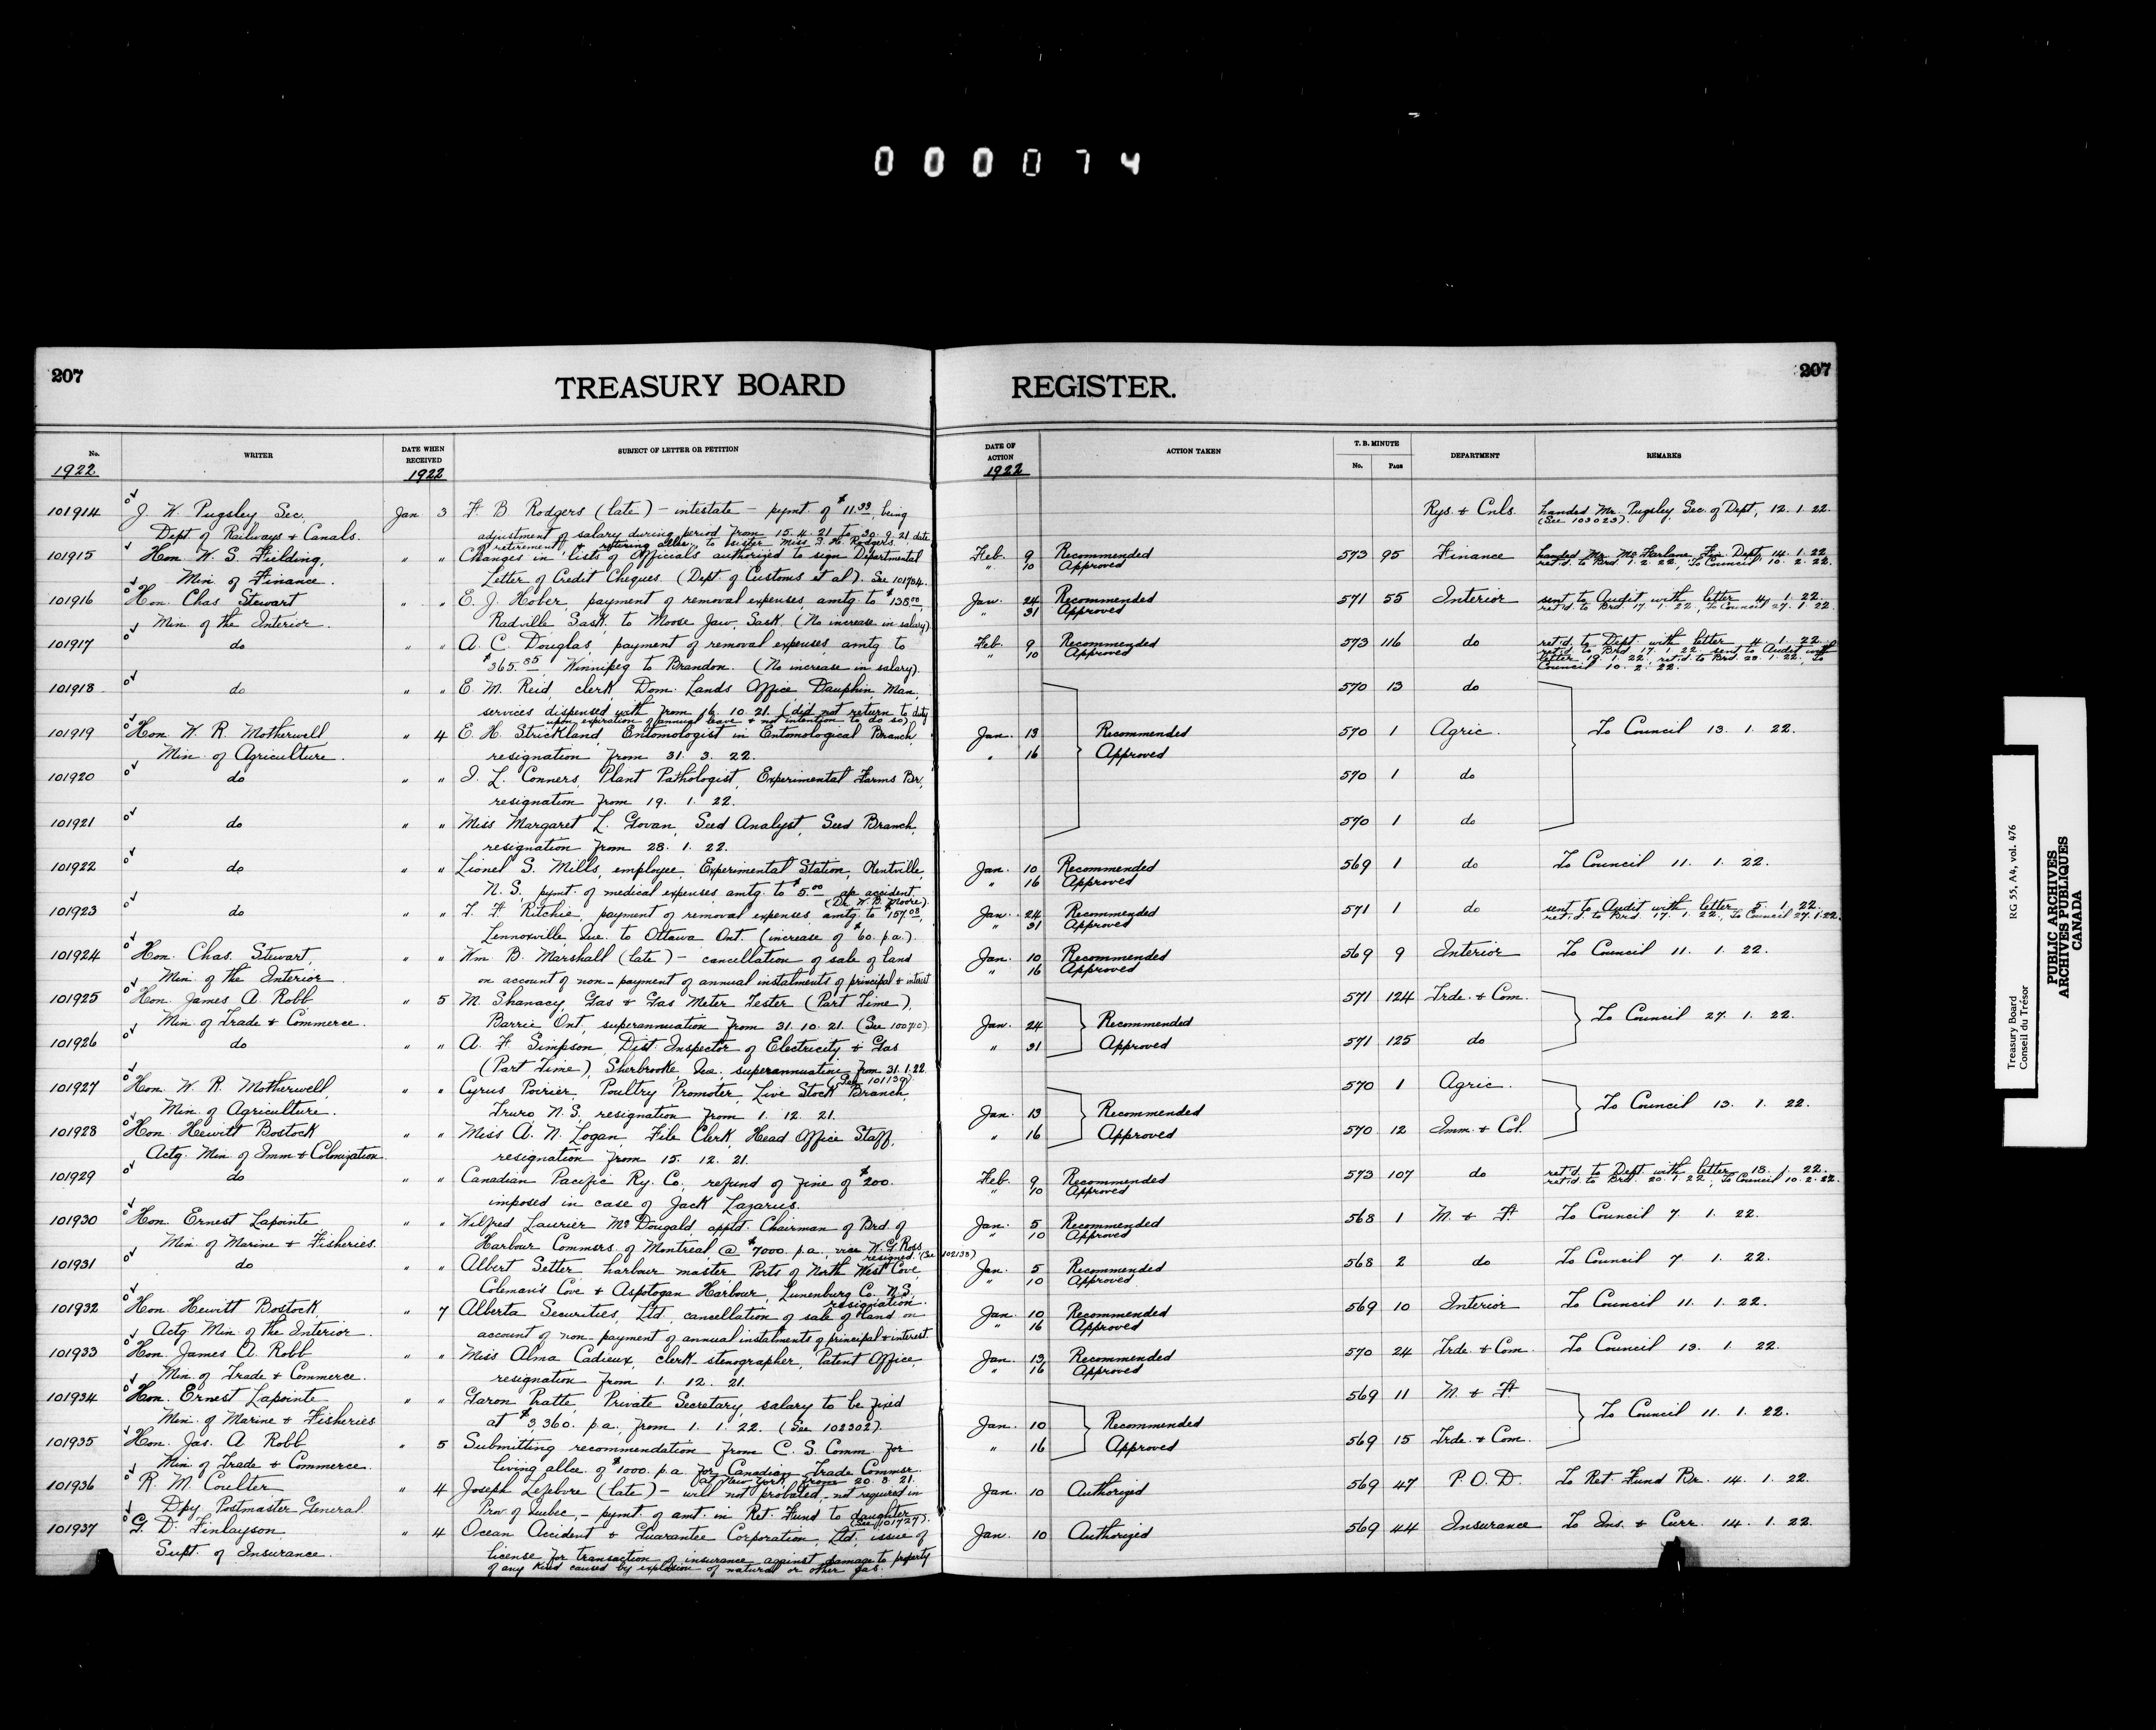 000074
207
TREASURY BOARD
REGISTER.
207
No.
1922
WRITER
DATE WHEN RECEIVED
1922
SUBJECT OF LETTER OR PETITION
DATE OF ACTION
1922
ACTION TAKEN
T. B. MINUTE
No. PAGE
DEPARTMENT
REMARKS
101914 J. W. Pugsley Sec. Jan 3 F. B. Rodgers (late) - intestate - pymt. of $11.33, being Rys. & Cnls. handed Mr. Pugsley, Sec. of Dept, 12. 1. 22.
Dept. of Railways & Canals. adjustment of salary during period from 15. 4. 21 to 30. 9. 21 date (See 103023).
of retirement, & retiring allce. to sister Miss S. H. Rodgers.
101915 Hon. W. S. Fielding, " " Changes in lists of Officials authorized to sign Departmental Feb. 9 Recommended 573 95 Finance handed Mr. McFarlane, Fin. Dept. 14. 1. 22
Min. of Finance. Letter of Credit Cheques. (Dept. of Customs et al). See 101734. " 10 Approved ret'd. to Brd. 1. 2. 22, To Council 10. 2. 22.
101916 Hon. Chas Stewart " " E. J. Hober, payment of removal expenses, amtg. to $138.00, Jan. 24 Recommended 571 55 Interior sent to Audit with letter 4. 1. 22.
Min. of the Interior. Radville Sask. to Moose Jaw, Sask. (No increase in salary) " 31 Approved ret'd. to Brd. 17. 1. 22, To Council 27. 1. 22.
101917 do " " A. C. Douglas, payment of removal expenses, amtg. to Feb. 9 Recommended 573 116 do ret'd. to Dept. with letter 4. 1. 22.
$365.85, Winnipeg to Brandon. (No increase in salary). " 10 Approved ret'd. to Brd. 17. 1. 22 sent to Audit with
letter 19. 1. 22, ret'd. to Brd. 28. 1. 22, To
Council 10. 2. 22.
101918 do " " E. M. Reid, clerk, Dom. Lands Office Dauphin, Man, 570 13 do
services dispensed with from 16. 10. 21. (did not return to duty
upon expiration of annual leave & not intention to do so)
101919 Hon. W. R. Motherwell " 4 E. H. Strickland, Entomologist in Entomological Branch, Jan. 13 Recommended 570 1 Agric. To Council 13. 1. 22.
Min. of Agriculture. resignation from 31. 3. 22. " 16 Approved
101920 do " " I. L. Conners, Plant Pathologist, Experimental Farms Br, 570 1 do
resignation from 19. 1. 22.
101921 do " " Miss Margaret L. Govan, Seed Analyst, Seed Branch, 570 1 do
resignation from 28. 1. 22.
101922 do " " Lionel S. Mills, employee, Experimental Station, Kentville, Jan. 10 Recommended 569 1 do To Council 11. 1. 22.
N. S. pymt. of medical expenses amtg. to $5.00 ac. accident. " 16 Approved
(Dr. W. B. Moore).
101923 do " " T. F. Ritchie, payment of removal expenses amtg. to $157.08, Jan. 24 Recommended 571 1 do sent to Audit with letter 5. 1. 22.
Lennoxville, Que. to Ottawa, Ont. (increase of $60. p.a.). " 31 Approved ret'd. to Brd. 17. 1. 22, To Council 27. 1. 22.
101924 Hon. Chas. Stewart, " " Wm. B. Marshall (late) - cancellation of sale of land Jan. 10 Recommended 569 9 Interior To Council 11. 1. 22.
Min. of the Interior. on account of non-payment of annual instalments of principal & interest " 16 Approved
101925 Hon. James A. Robb " 5 M. Shanacy, Gas & Gas Meter Tester (Part Time), 571 124 Trde. & Com.
Min. of Trade & Commerce. Barrie Ont, superannuation from 31. 10. 21. (See 100710) Jan. 24 Recommended To Council 27. 1. 22.
101926 do " " A. F. Simpson, Dist. Inspector of Electricity & Gas " 31 Approved 571 125 do
(Part Time), Sherbrooke, Que. superannuation from 31. 1. 22.
(See 101139)
101927 Hon. W. R. Motherwell, " " Cyrus Poirier, Poultry Promoter, Live Stock Branch, 570 1 Agric.
Min. of Agriculture. Truro N. S. resignation from 1. 12. 21. Jan. 13 Recommended To Council 13. 1. 22.
101928 Hon. Hewitt Bostock " " Miss A. N. Logan, File Clerk, Head Office Staff, " 16 Approved 570 12 Imm. & Col.
Actg. Min. of Imm & Colonization. resignation from 15. 12. 21.
101929 do " " Canadian Pacific Ry. Co, refund of fine of $200. Feb. 9 Recommended 573 107 do ret'd. to Dept. with letter 18. 1. 22.
imposed in case of Jack Lazarus. " 10 Approved ret'd. to Brd. 20. 1. 22, To Council 10. 2. 22.
101930 Hon. Ernest Lapointe, " " Wilfred Laurier McDougald, apptd. Chairman of Brd. of Jan. 5 Recommended 568 1 M. & F. To Council 7. 1. 22.
Min. of Marine & Fisheries. Harbour Commrs. of Montreal, @ $7000. p.a., vice W. G. Ross, " 10 Approved
resigned. (See 102138)
101931 do " " Albert Setter harbour master Ports of North West Cove, Jan. 5 Recommended 568 2 do To Council 7. 1. 22.
Coleman's Cove & Aspotogan Harbour, Lunenburg Co. N. S. " 10 Approved
resignation.
101932 Hon. Hewitt Bostock " 7 Alberta Securities, Ltd, cancellation of sale of land on Jan. 10 Recommended 569 10 Interior To Council 11. 1. 22.
Actg. Min. of the Interior. account of non-payment of annual instalments of principal & interest. " 16 Approved
101933 Hon. James A. Robb " " Miss Alma Cadieux, clerk-stenographer, Patent Office, Jan. 13 Recommended 570 24 Trde. & Com. To Council 13. 1. 22.
Min. of Trade & Commerce. resignation from 1. 12. 21. " 16 Approved
101934 Hon. Ernest Lapointe " " Garon Pratte, Private Secretary, salary to be fixed 569 11 M. & F.
Min. of Marine & Fisheries at $3,360. p.a. from 1. 1. 22. (See 102302) Jan. 10 Recommended To Council 11. 1. 22.
101935 Hon. Jas. A. Robb " 5 Submitting recommendation from C. S. Comm. for " 16 Approved 569 15 Trde. & Com.
Min. of Trade & Commerce. living allce. of $1000. p.a. for Canadian Trade Commsr.
at New York, from 20. 3. 21.
101936 R. M. Coulter " 4 Joseph Lefebvre (late) - will not probated, - not required in Jan. 10 Authorized 569 47 P. O. D. To Ret. Fund Br. 14. 1. 22.
Dpy. Postmaster General. Prov. of Quebec, - pymt. of amt. in Ret. Fund to daughter
(See 101727).
101937 G. D. Finlayson " 4 Ocean Accident & Guarantee Corporation, Ltd, issue of Jan. 10 Authorized 569 44 Insurance To Ins. & Curr. 14. 1. 22.
Supt. of Insurance. license for transaction of insurance against damage to property
of any kind caused by explosion of natural or other gas.
Treasury Board RG 55, A4, vol. 476
Conseil du Trésor
PUBLIC ARCHIVES
ARCHIVES PUBLIQUES
CANADA